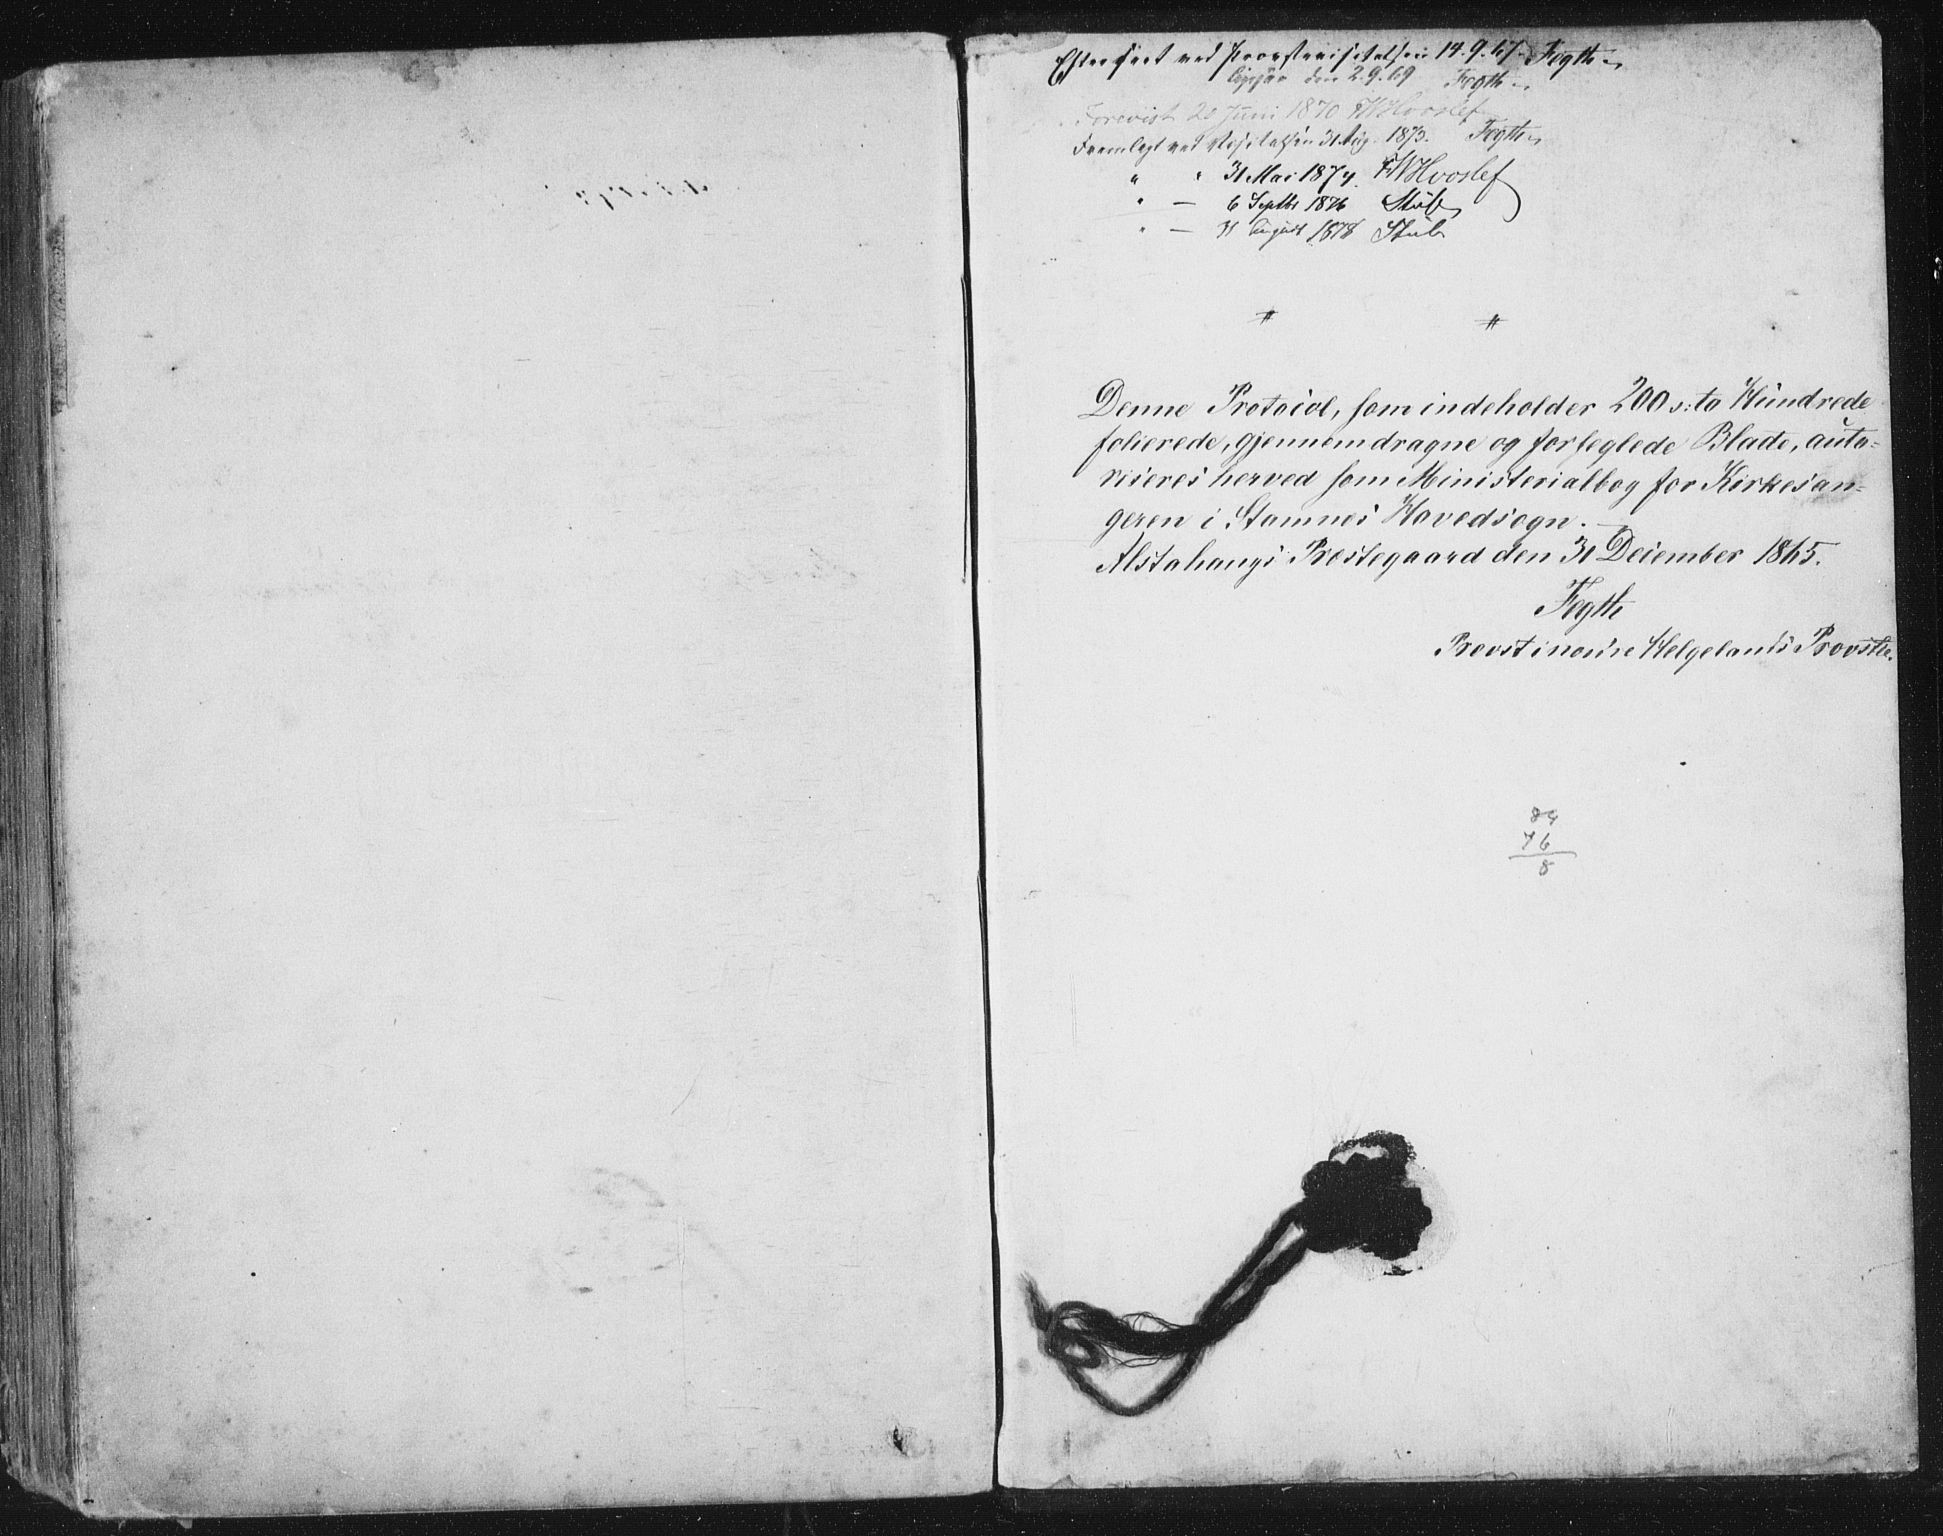 Efterseet ved Provstevisitatsen 14.9.67. Fogth
ligesaa den 2.9.69 Fogth
Forevist 20 Juni 1870 FWHvoslef
Fremlagt ved Visitatsen 31 Aug. 1873. Fogth
" " 31 Mai 1874. FWHvoslef
" — 6 Septbr 1876 Stub
" — 31 August 1878 Stub
Denne Protocol, som indeholder 200 s: to Hundrede
folierede, gjennemdragne og forseglede Blade, auto-
riseres herved som Ministerialbog for Kirkesan-
geren i Stamnes Hovedsogn.
Alstahaugs Præstegaard den 31 December 1865.
Fogth
Provst i nordre Helgelands Provstie.
84
76
8